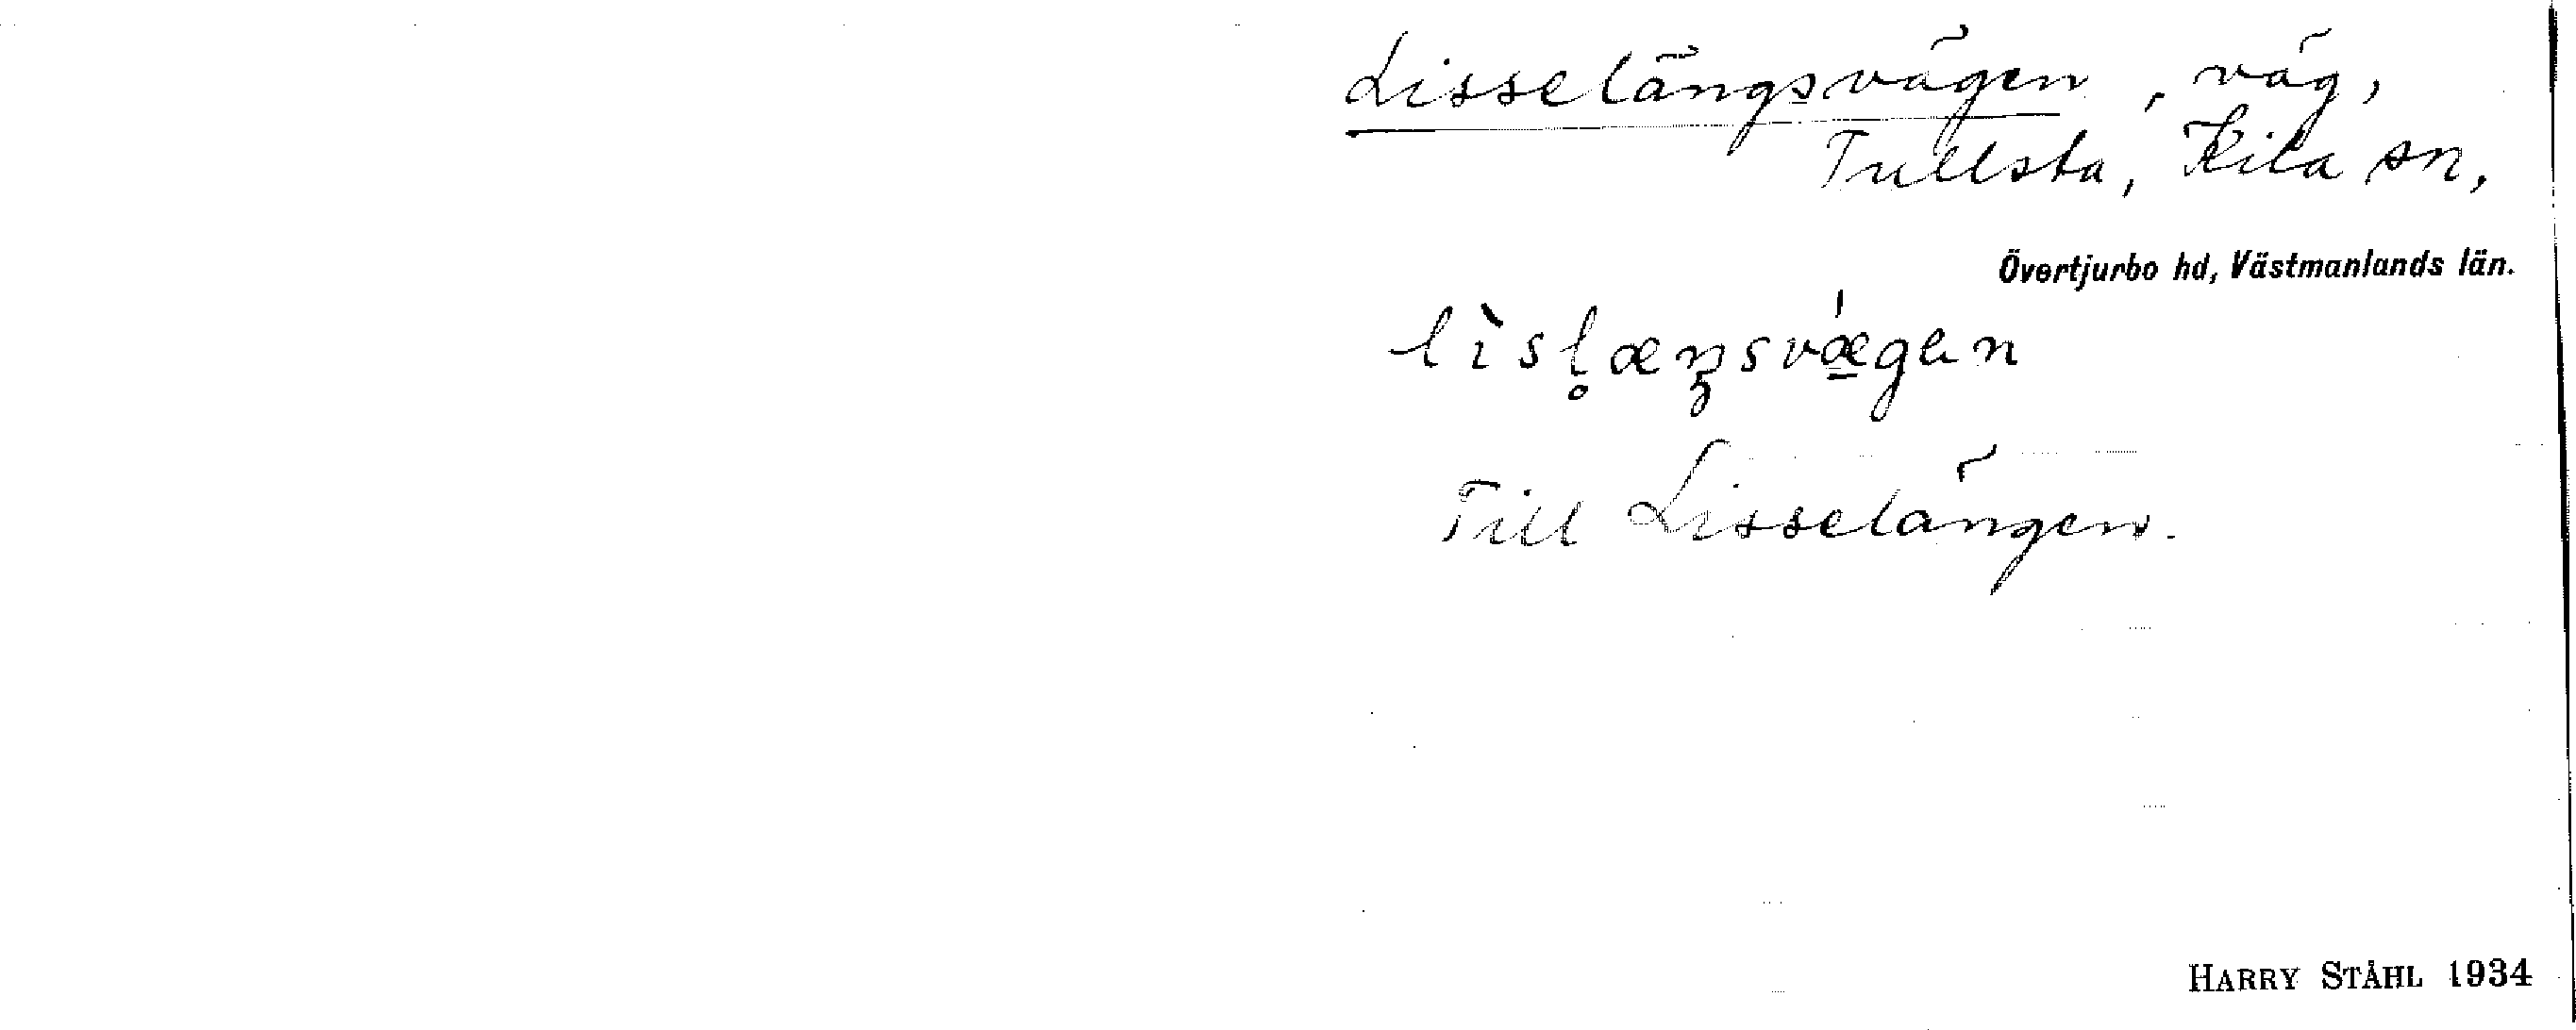 Lisselängsvägen, väg,
Tullsta, Kila sn,
Övertjurbo hd, Västmanlands län.
lìsl̥æŋsvǽgen
Till Lisselängen.
HARRY STÅHL 1934